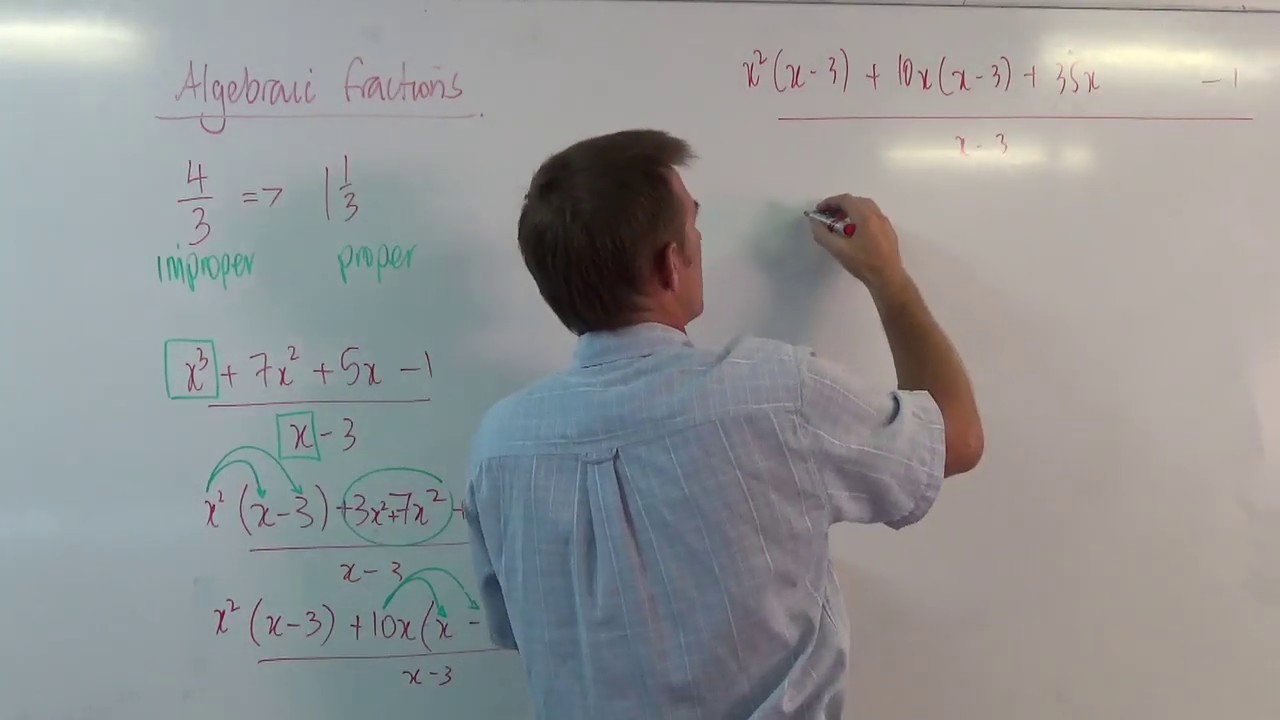 Algebraic fractions
4/3 => 1 1/3
improper proper
x³ + 7x² + 5x - 1
x - 3
x² (x-3) +3x²+7x² +
x - 3
x² (x-3) + 10x(x -
x-3
x² (x - 3) + 10x(x - 3) + 35x - 1
x - 3